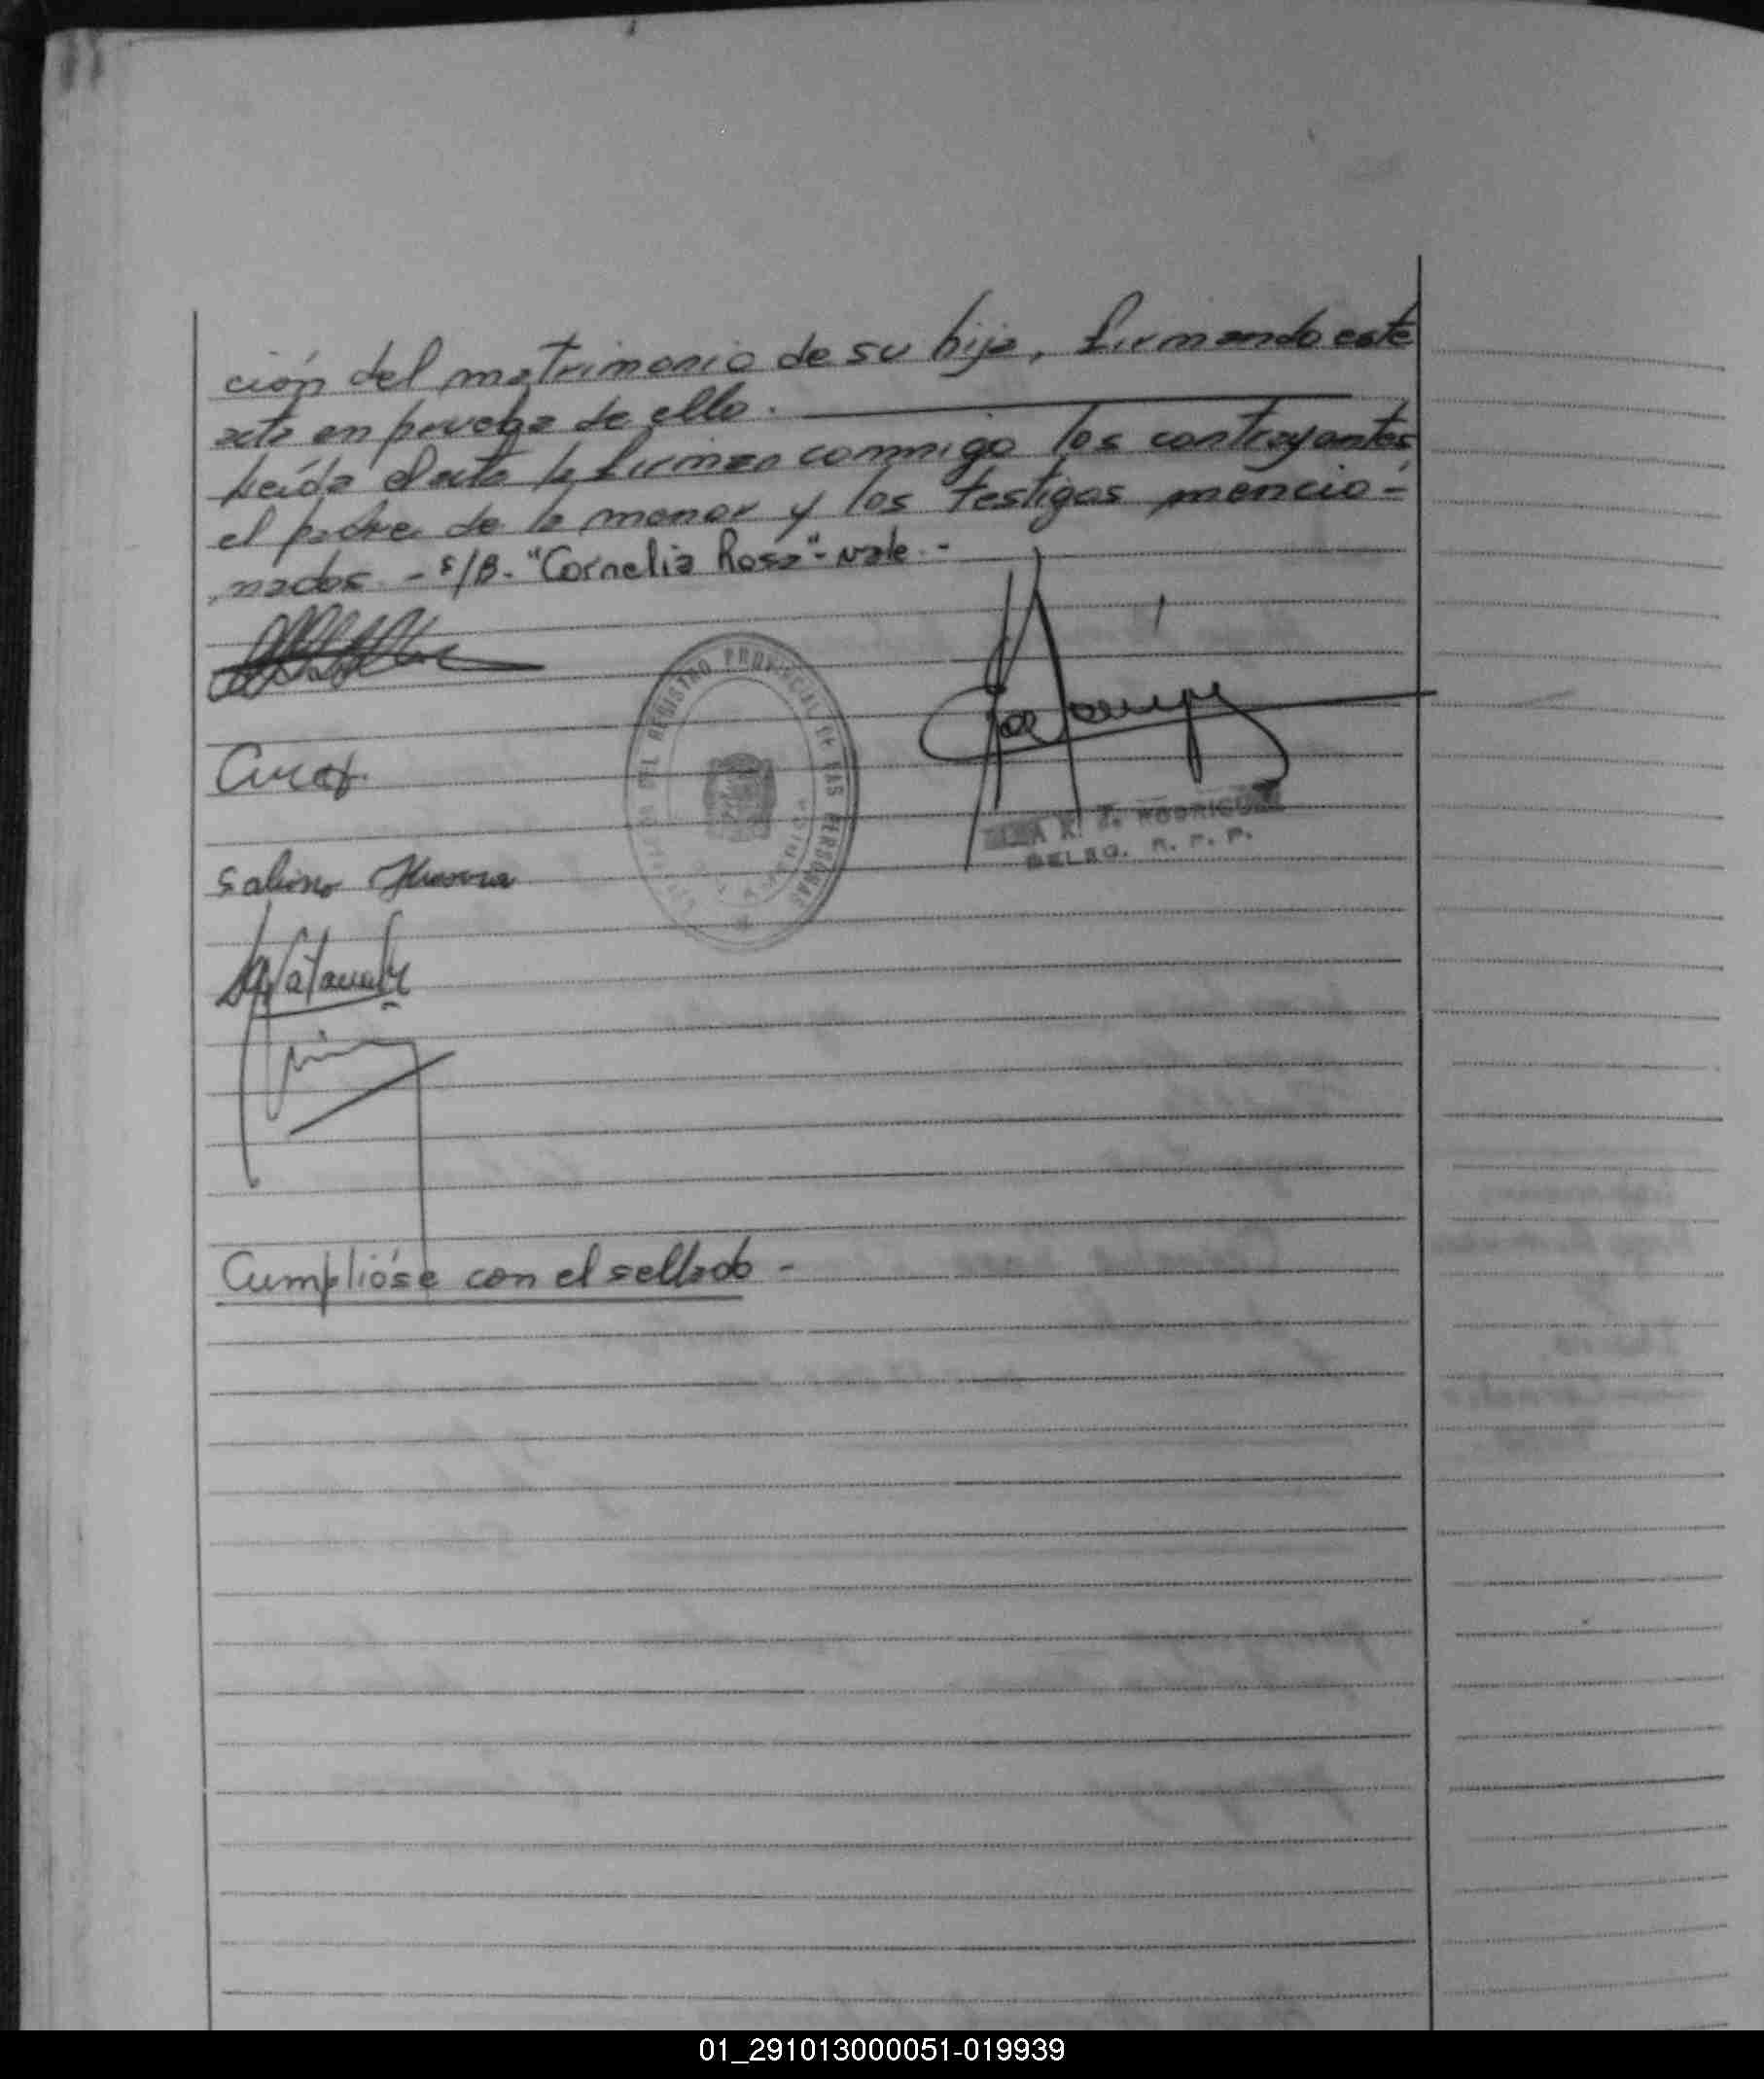 ción del matrimonio de su hija, firmando este
acta en prueba de ello.
Leída el acta la firman conmigo los contrayentes,
el padre de la menor y los testigos mencio-
nados. - s/B. "Cornelia Rosa" - vale. -
REGISTRO PROVINCIAL DE LAS PERSONAS
RODRIGUEZ
DELEG. R. P. P.
Sabino
Cumplióse con el sellado -
01_291013000051-019939